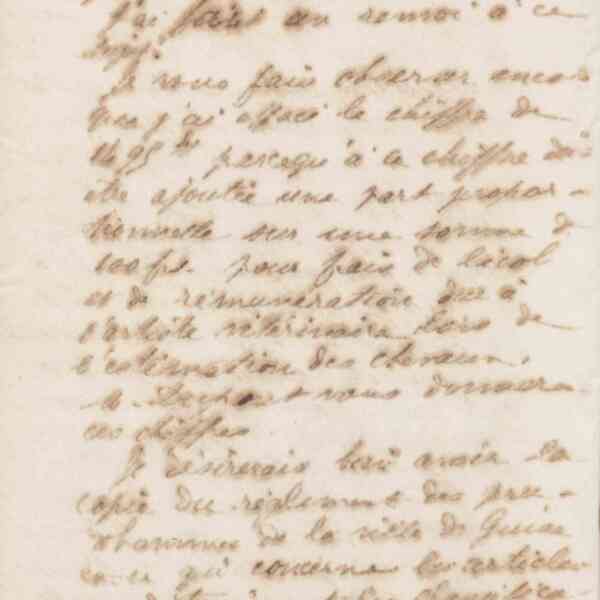 j'ai fait un renvoi à ce
sujet.
Je vous fais observer encore
que j'ai effacé le chiffre de
1495 parcequ'à ce chiffre doit
être ajoutée une part propor-
tionnelle sur une somme de
100 fs. pour frais de licol
et de rémunération due à
l'artiste vétérinaire lors de
l'estimation des chevaux.
M. vous donnera
ces chiffres.
Je désirerais bien avoir la
copie du règlement des
de la ville de Guise
en ce qui concerne les articles